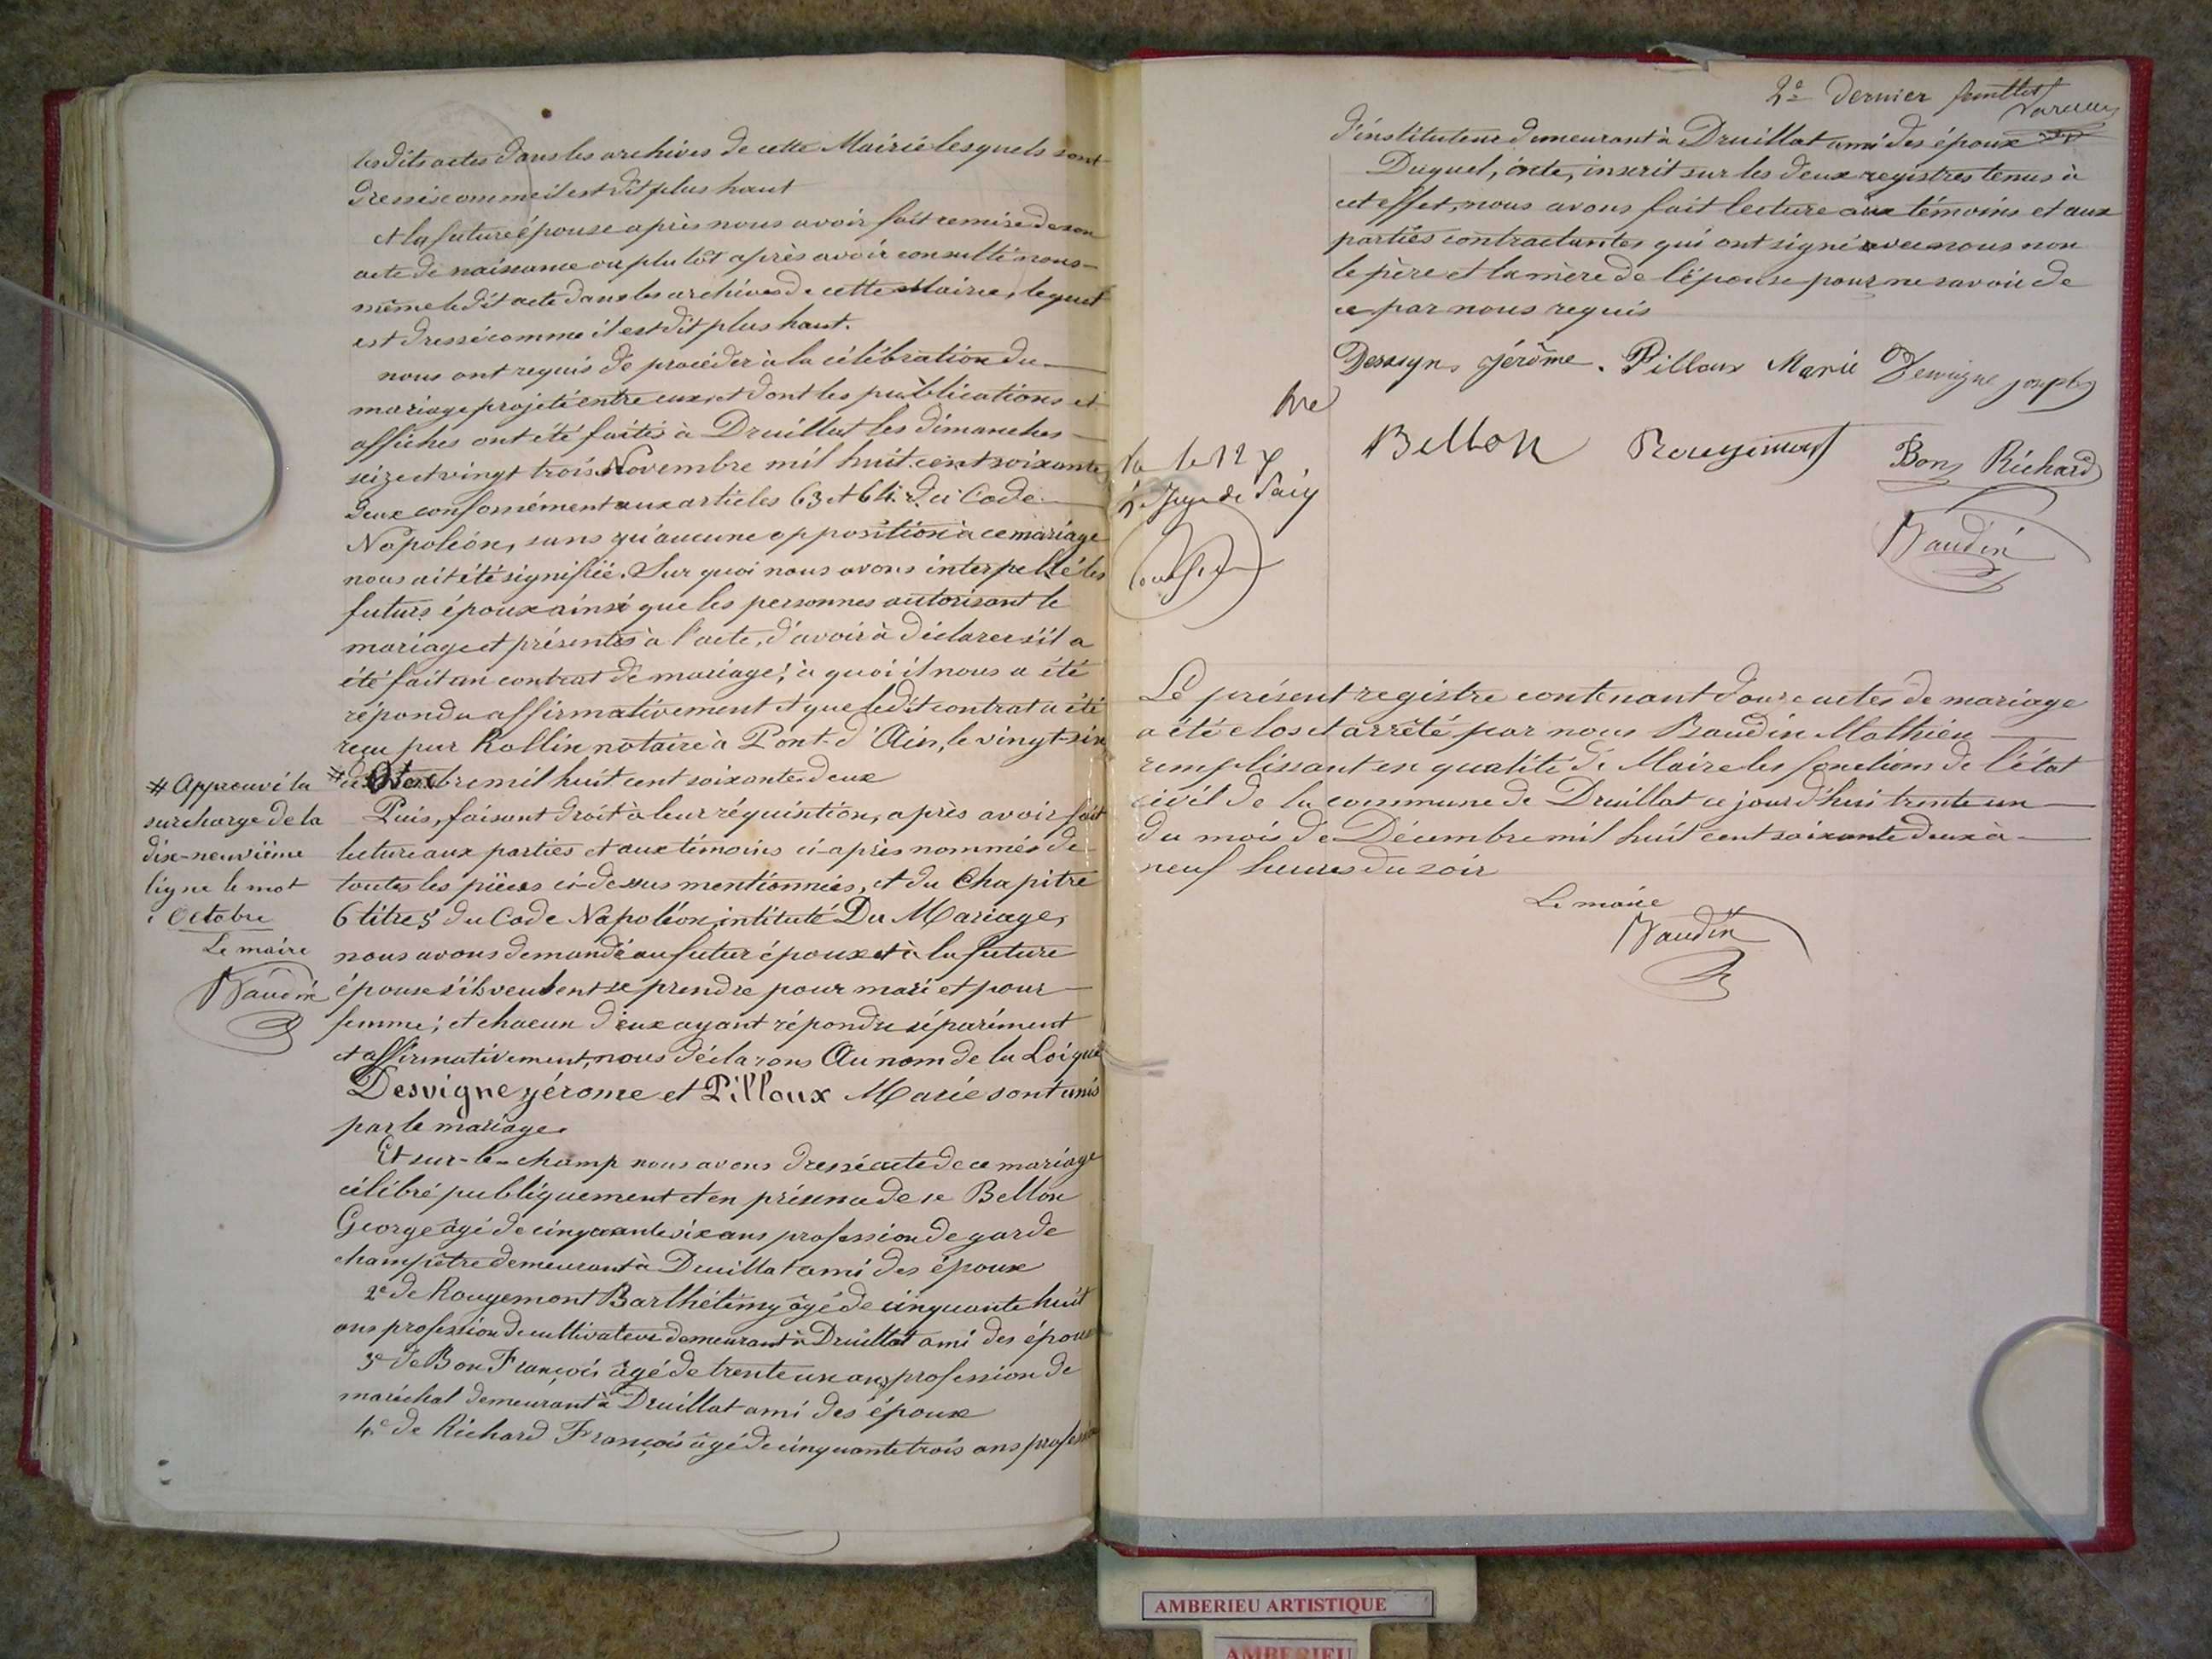 lesdits actes dans les archives de cette Mairie lesquels sont
dressés comme il est dit plus haut
et la future épouse après nous avoir fait remise de son
acte de naissance ou plutôt après avoir consulté nous-
même ledit acte dans les archives de cette Mairie, lequel
est dressé comme il est dit plus haut.
nous ont requis de procéder à la célébration du
mariage projeté entre eux et dont les publications et
affiches ont été faites à Druillat les dimanches
seize et vingt trois Novembre mil huit cent soixante
deux conformément aux articles 63 et 64 du Code
Napoléon, sans qu'aucune opposition à ce mariage
nous ait été signifiée. Sur quoi nous avons interpellé les
futurs époux ainsi que les personnes autorisant le
mariage et présentes à l'acte, d'avoir à déclarer s'il a
été fait un contrat de mariage; à quoi il nous a été
répondu affirmativement et que ledit contrat a été
reçu par Rollin notaire à Pont-d'Ain, le vingt-six
# Octobre mil huit cent soixante deux
Puis, faisant droit à leur réquisition, après avoir fait
lecture aux parties et aux témoins ci-après nommés de
toutes les pièces ci-dessus mentionnées, et du Chapitre
6 titre 5 du Code Napoléon, intitulé Du Mariage,
nous avons demandé au futur époux et à la future
épouse s'ils veulent se prendre pour mari et pour
femme; et chacun d'eux ayant répondu séparément
et affirmativement, nous déclarons Au nom de la Loi que
Desvigne Jérome et Pilloux Marie sont unis
par le mariage.
Et sur-le-champ nous avons dressé acte de ce mariage
célébré publiquement et en présence de 1e Bellon
George âgé de cinquante six ans profession de garde
champêtre demeurant à Druillat ami des époux
2e de Rougemont Barthélémy âgé de cinquante huit
ans profession de cultivateur demeurant à Druillat ami des époux
3e de Bon François âgé de trente un ans profession de
maréchal demeurant à Druillat ami des époux
4e de Richard François âgé de cinquante trois ans profession
# Approuvé la
surcharge de la
dix-neuvième
ligne le mot
Octobre
Le maire
Baudin
2e dernier feuillet
d'instituteur demeurant à Druillat ami des époux
Duquel, acte, inscrit sur les deux registres tenus à
cet effet, nous avons fait lecture aux témoins et aux
parties contractantes qui ont signé avec nous non
le père et la mère de l'épouse pour ne savoir de
ce par nous requis
Jérôme. Pilloux Marie Desvigne joseph
Bellon Rougemont Bon Richard
Juge de Paix
Baudin
Le présent registre contenant douze actes de mariage
a été clos et arrêté par nous Baudin Mathieu
remplissant en qualité de Maire les fonctions de l'état
civil de la commune de Druillat ce jour d'hui trente un
du mois de Décembre mil huit cent soixante deux à
neuf heures du soir
Le maire
Baudin
AMBERIEU ARTISTIQUE
AMBERIEU